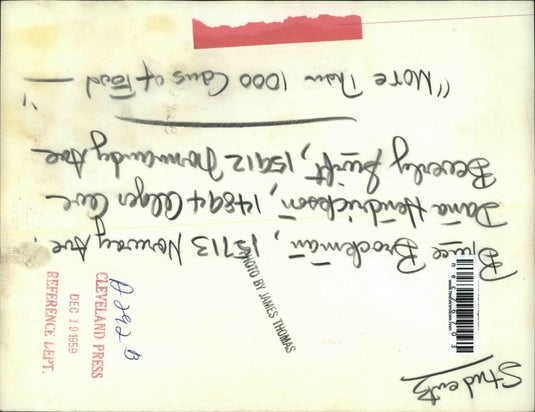 Students
Bruce Brockman, 15713 Norway Ave.
Dana Hendrickson, 14894 Alger Ave
Beverly Swift, 15912 Normandy Ave
"More Than 1000 Cans of Food —"
PHOTO BY JAMES THOMAS
A292B
CLEVELAND PRESS
DEC 19 1959
REFERENCE DEPT.